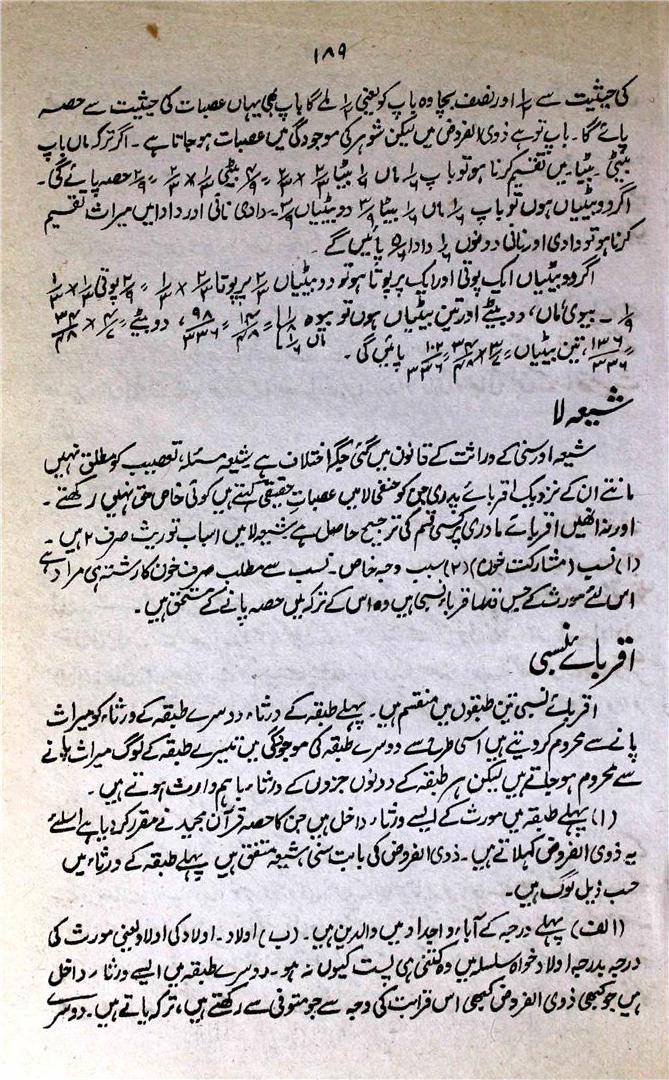 ۱۸۹
کی حیثیت سے ۱/۶ اور نصف بچا وہ باپ کو یعنی ۱/۲ ملے گا باپ بھی یہاں عصبات کی حیثیت سے حصہ
پائے گا۔ باپ تو ہے ذوی الفروض میں لیکن شوہر کی موجودگی میں عصبات ہو جاتا ہے۔ اگر ترکہ ماں باپ
بیٹی۔ بیٹا۔ میں تقسیم کرنا ہو تو باپ ۱/۶ ماں ۱/۶ بیٹا ۲/۳ × ۲/۳ = ۴/۹ بیٹی ۱/۳ × ۲/۳ = ۲/۹ حصہ پائے گی۔
اگر دو بیٹیاں ہوں تو باپ ۱/۶ ماں ۱/۶ بیٹا دو بیٹیاں دادی نانی اور دادا میں میراث تقسیم
کرنا ہو تو دادی اور نانی دونوں ۱/۶ دادا ۵/۶ پائیں گے۔
اگر دو بیٹیاں ایک پوتی اور ایک پرپوتا ہو تو دو بیٹیاں ۲/۳ پرپوتا ۲/۳ × ۱/۳ = ۲/۹ پوتی ۱/۳ × ۱/۳
= ۱/۹ ۔ بیوی، ماں، دو بیٹے اور تین بیٹیاں ہوں تو بیوہ ۱/۸ ماں ۱/۶ = ۱۴/۴۸ = ۹۸/۳۳۶، دو بیٹے = ۴/۷ × ۳۴/۴۸
= ۱۳۶/۳۳۶، تین بیٹیاں = ۳/۷ × ۳۴/۴۸ = ۱۰۲/۳۳۶ پائیں گی۔
شیعہ لا
شیعہ اور سنی کے وراثت کے قانون میں کئی جگہ اختلاف ہے شیعہ مسئلہ تعصیب کو مطلق نہیں
مانتے ان کے نزدیک اقربائے پدری جن کو حنفی لا میں عصبات حقیقی کہتے ہیں کوئی خاص حق نہیں رکھتے۔
اور نہ انھیں اقربائے مادری پر کسی قسم کی ترجیح حاصل ہے شیعہ لا میں اسباب توریث صرف ۲ ہیں۔
(۱) نسب (مشارکت خون) (۲) سبب وجہ خاص۔ نسب سے مطلب صرف خون کا رشتہ ہی مراد ہے
اس لئے مورث کے جس قدر اقرباء نسبی ہیں وہ اس کے ترکہ میں حصہ پانے کے مستحق ہیں۔
اقربائے نسبی
اقربائے نسبی تین طبقوں میں منقسم ہیں۔ پہلے طبقہ کے ورثاء دوسرے طبقہ کے ورثاء کو میراث
پانے سے محروم کر دیتے ہیں اسی طرح سے دوسرے طبقہ کی موجودگی میں تیسرے طبقہ کے لوگ میراث پانے
سے محروم ہو جاتے ہیں لیکن ہر طبقہ کے دونوں جزوں کے ورثاء باہم وارث ہوتے ہیں۔
(۱) پہلے طبقہ میں مورث کے ایسے ورثاء داخل ہیں جن کا حصہ قرآن مجید نے مقرر کر دیا ہے اسلئے
یہ ذوی الفروض کہلاتے ہیں۔ ذوی الفروض کی بابت سنی شیعہ متفق ہیں پہلے طبقہ کے ورثاء میں
حسب ذیل لوگ ہیں۔
(الف) پہلے درجہ کے آباء و اجداد میں والدین ہیں۔ (ب) اولاد۔ اولاد کی اولاد یعنی مورث کی
درجہ بدرجہ اولاد خواہ سلسلہ میں وہ کتنی ہی پست کیوں نہ ہو۔ دوسرے طبقہ میں ایسے ورثاء داخل
ہیں جو کبھی ذوی الفروض کبھی اس قرابت کی وجہ سے جو متوفی سے رکھتے ہیں، ترکہ پاتے ہیں۔ دوسرے